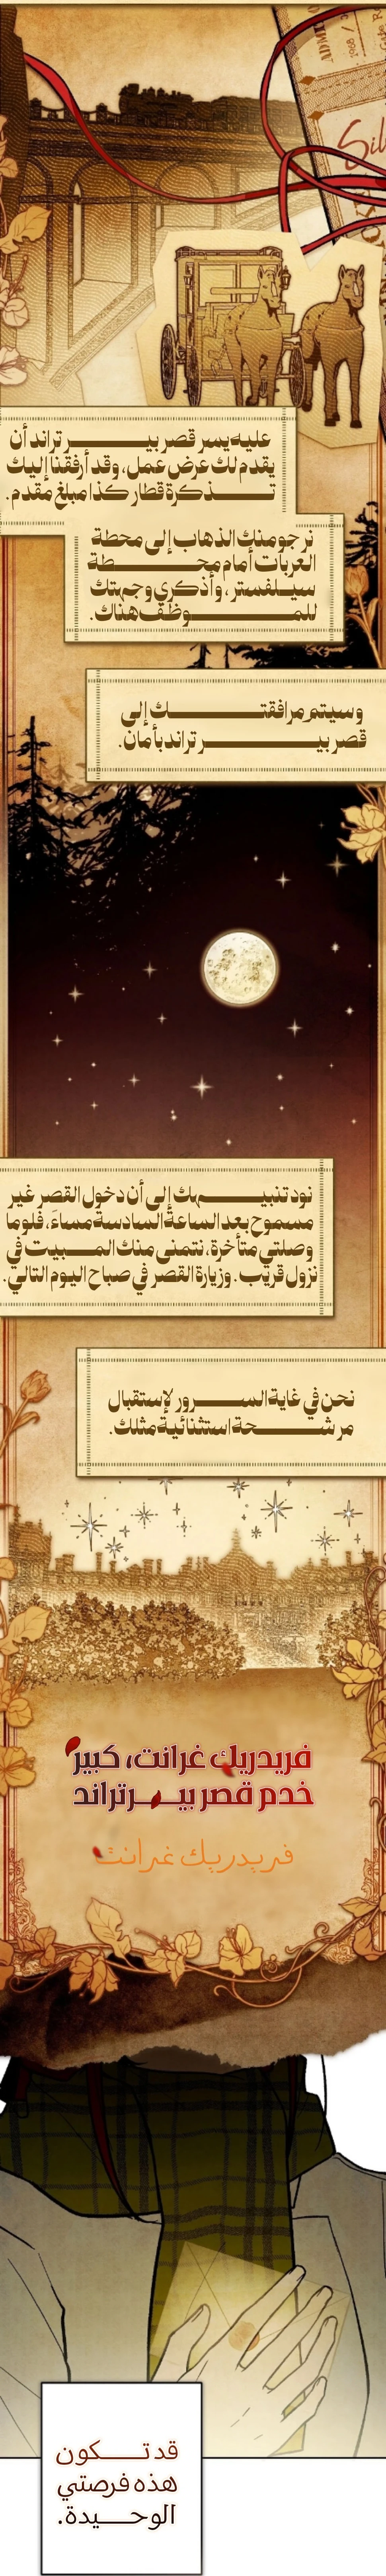 ADMIT
1908
Sil
عليه يسر قصر بيرتراند أن
يقدم لك عرض عمل، وقد أرفقنا إليك
تذكرة قطار كذا مبلغ مقدم.
نرجو منك الذهاب إلى محطة
العربات أمام محطة
سيلفستر، وأذكري وجهتك
للموظف هناك.
وسيتم مرافقتك إلى
قصر بيرتراند بأمان.
نود تنبيهك إلى أن دخول القصر غير
مسموح بعد الساعة السادسة مساءً، فلوما
وصلتي متأخرة، نتمنى منك المبيت في
نزول قريب. وزيارة القصر في صباح اليوم التالي.
نحن في غاية السرور لإستقبال
مرشحة استثنائية مثلك.
فريدريك غرانت، كبير
خدم قصر بيرتراند
فريدريك غرانت
قد تكون
هذه فرصتي
الوحيدة.